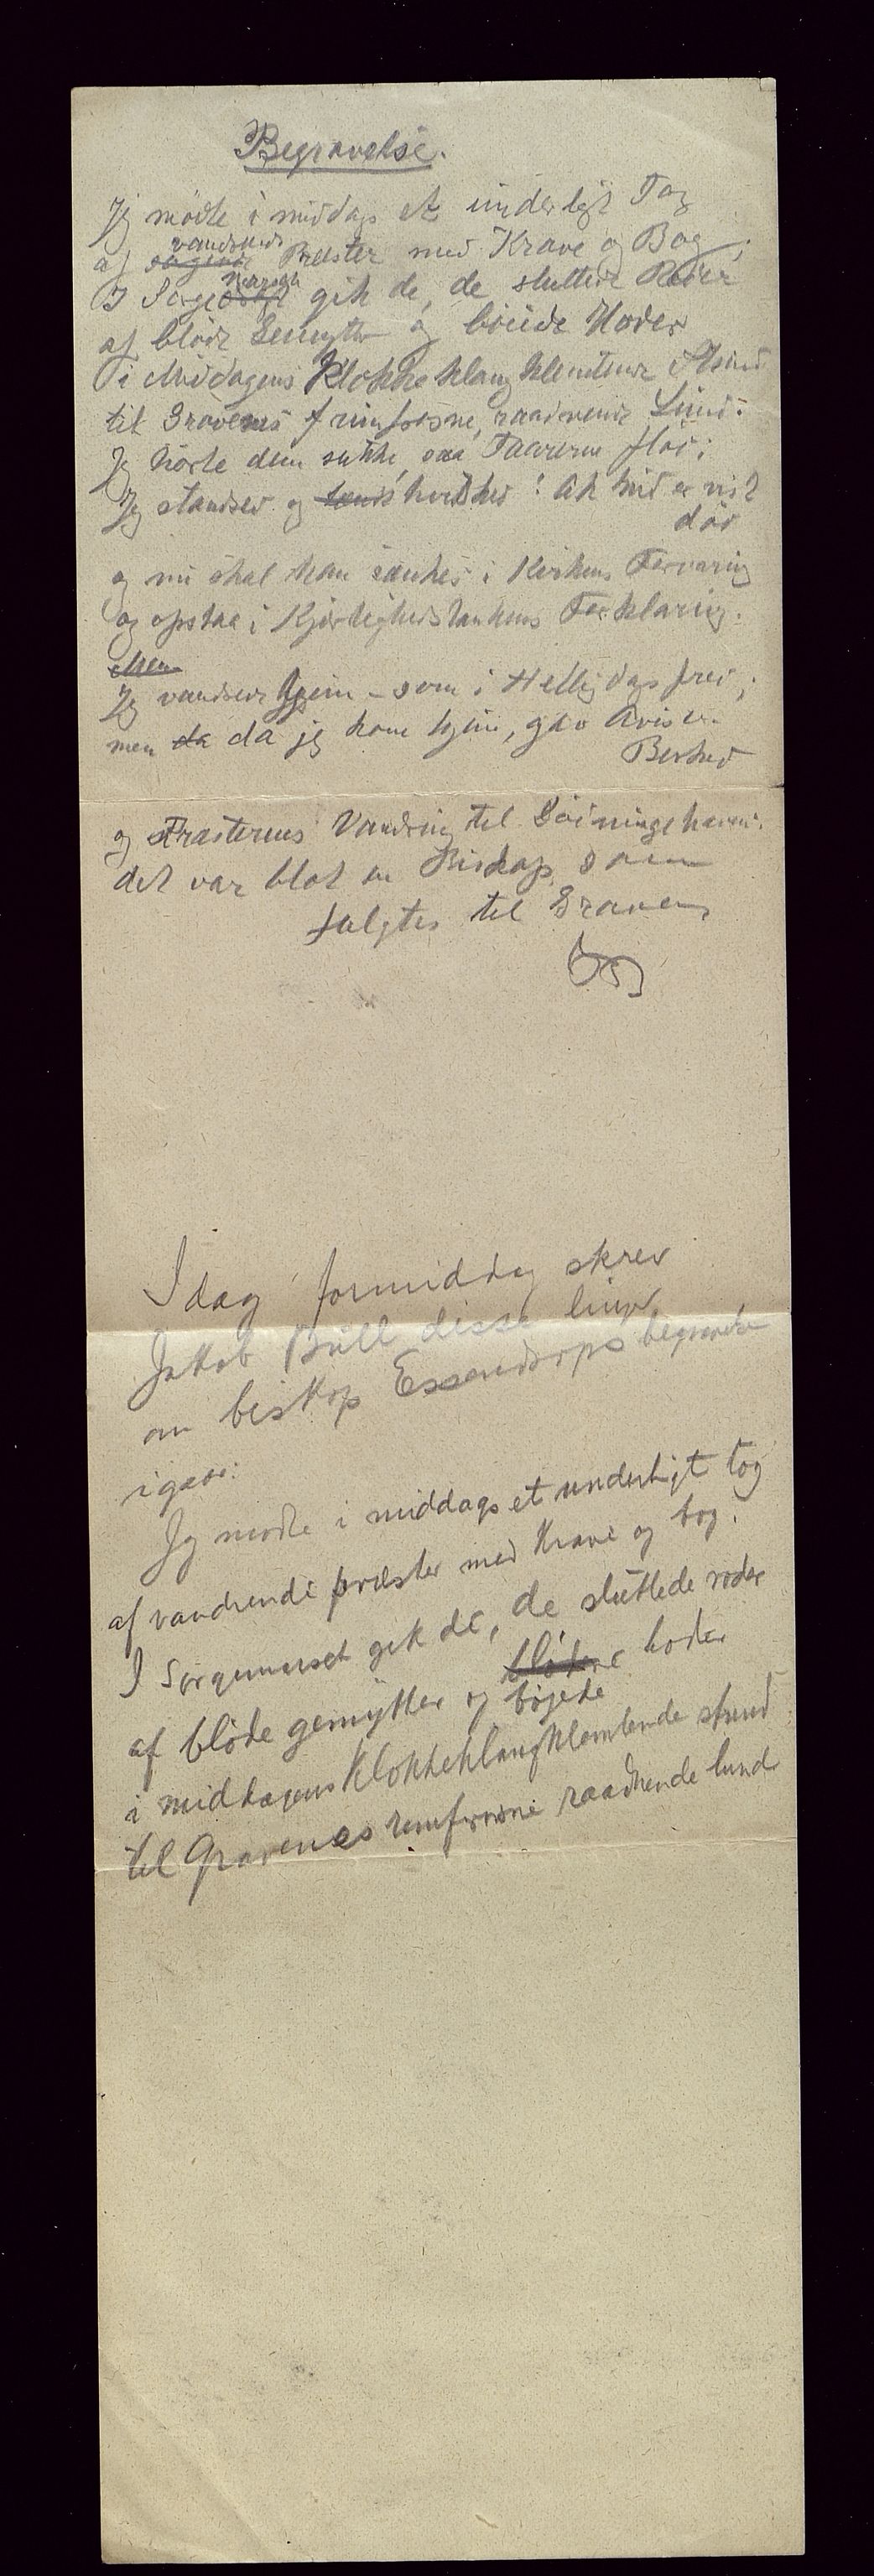 Begravelse.
Jeg mødte i middags et underligt Tog
vandrende
af Præster med Krave og Bog;
marsch
I Sørge gik de, de sluttede Roder
af bløde Gemytter og böiede Hoder
i Middagens Klokkeklang klemtende Stund
til Gravenes frimfrosne, raadnende Lund.
Jeg hørte dem sukke, saa Taarerne flød;
Jeg standsed og hvisked: Ak hvid er vist
død
og nu skal han sænkes i Kirkens Forvaring
og opstaa i Kjærlighedstankens Forklaring.
Men
Jeg vandred hjem – som i Helligdagsfred;
men da da jeg kom hjem, gav Avisen
Besked
og Præsternes Vandring til Dødningehaven.
det var blot en Biskop, som
fulgtes til Graven
Idag formiddag skrev
Jakob Bull disse linjer
om biskop Essendorps begravelse
igaar:
Jeg mødte i middags et underligt tog
af vandrende præster med Krave og bog.
I Sørgemarsch gik de, de sluttede roder
af bløde gemytter og bløde hoder
bøjede
i middagens Klokkeklang klemtende stund
til Gravenes rimfrosne raadnende lund